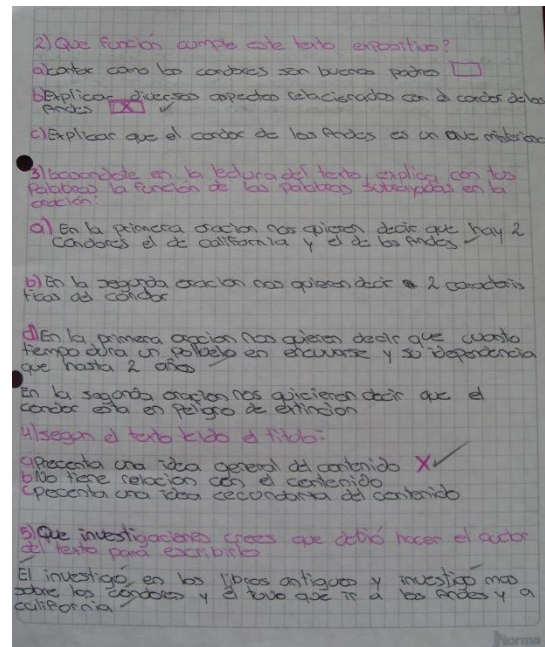 2) Que Función cumple este texto expositivo?
a) contar como los condores son buenos padres
b) Explicar diversos aspectos relacionados con el condor de los
Andes X
c) Explicar que el condor de los Andes es un ave misterioso
3) basandote en la lectura del texto, explica con tus
Palabras la función de las palabras subrayadas en la
oración:
a) En la primera oracion nos quieren decir que hay 2
Condores el de california y el de los Andes
b) En la segunda oracion nos quieren decir 2 caracteris
ticas del cóndor
d) En la primera oracion nos quieren decir que cuanto
tiempo dura un polluelo en encuvarse y su dependencia
que hasta 2 años
En la segunda oracion nos quicieron decir que el
condor esta en Peligro de extincion
4) segun el texto leido el titulo:
a) Precenta una idea general del contenido X
b) No tiene relacion con el contenido
c) precenta una idea cecundaria del contenido
5) Que investigaciones crees que debió hacer el autor
del texto para escribirlo
El investigó en los libros antiguos y investigó mas
sobre los condores y el tuvo que ir a los Andes y a
california
Norma